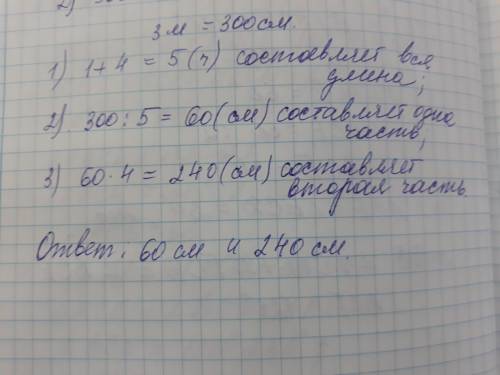 3м = 300см.
1) 1+4 = 5(ч) составляет вся
длина;
2) 300:5 = 60(см) составляет одна
часть;
3) 60·4 = 240(см) составляет
вторая часть.
Ответ: 60 см и 240 см.